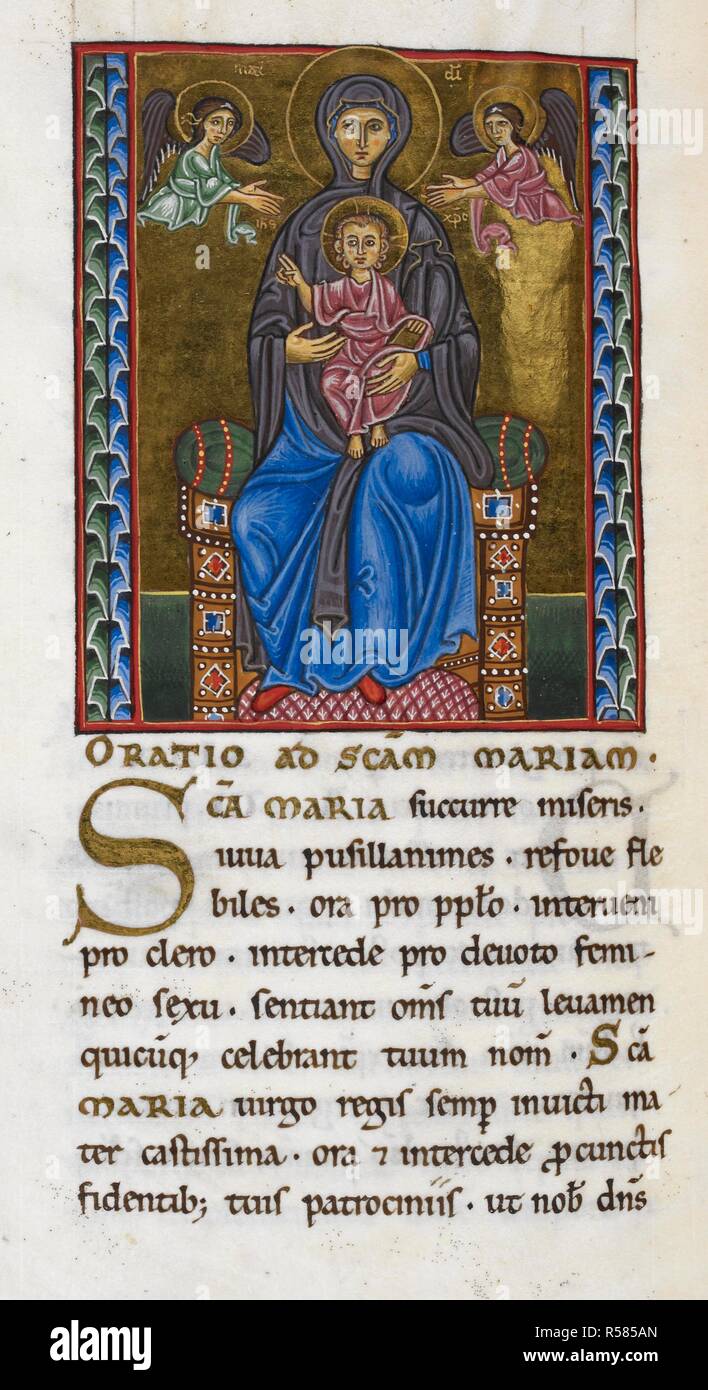 mar̄ dī
ihs xpc
ORATIO AD SC̄AM MARIAM ·
SC̄A MARIA succurre miseris ·
iuua pusillanimes · refoue fle
biles · ora pro pp̄lo · interueni
pro clero · intercede pro deuoto femi-
neo sexu · sentiant om̄s tuū leuamen
quicūq; celebrant tuum nom̄ · Sc̄a
MARIA uirgo regis semp̄ inuicti ma
ter castissima · ora ⁊ intercede ꝓ cunctis
fidentib; tuis patrociniis · ut nob̄ dn̄s
a alamy
alamy stock photo
alamy
Image ID: R585AN
www.alamy.com